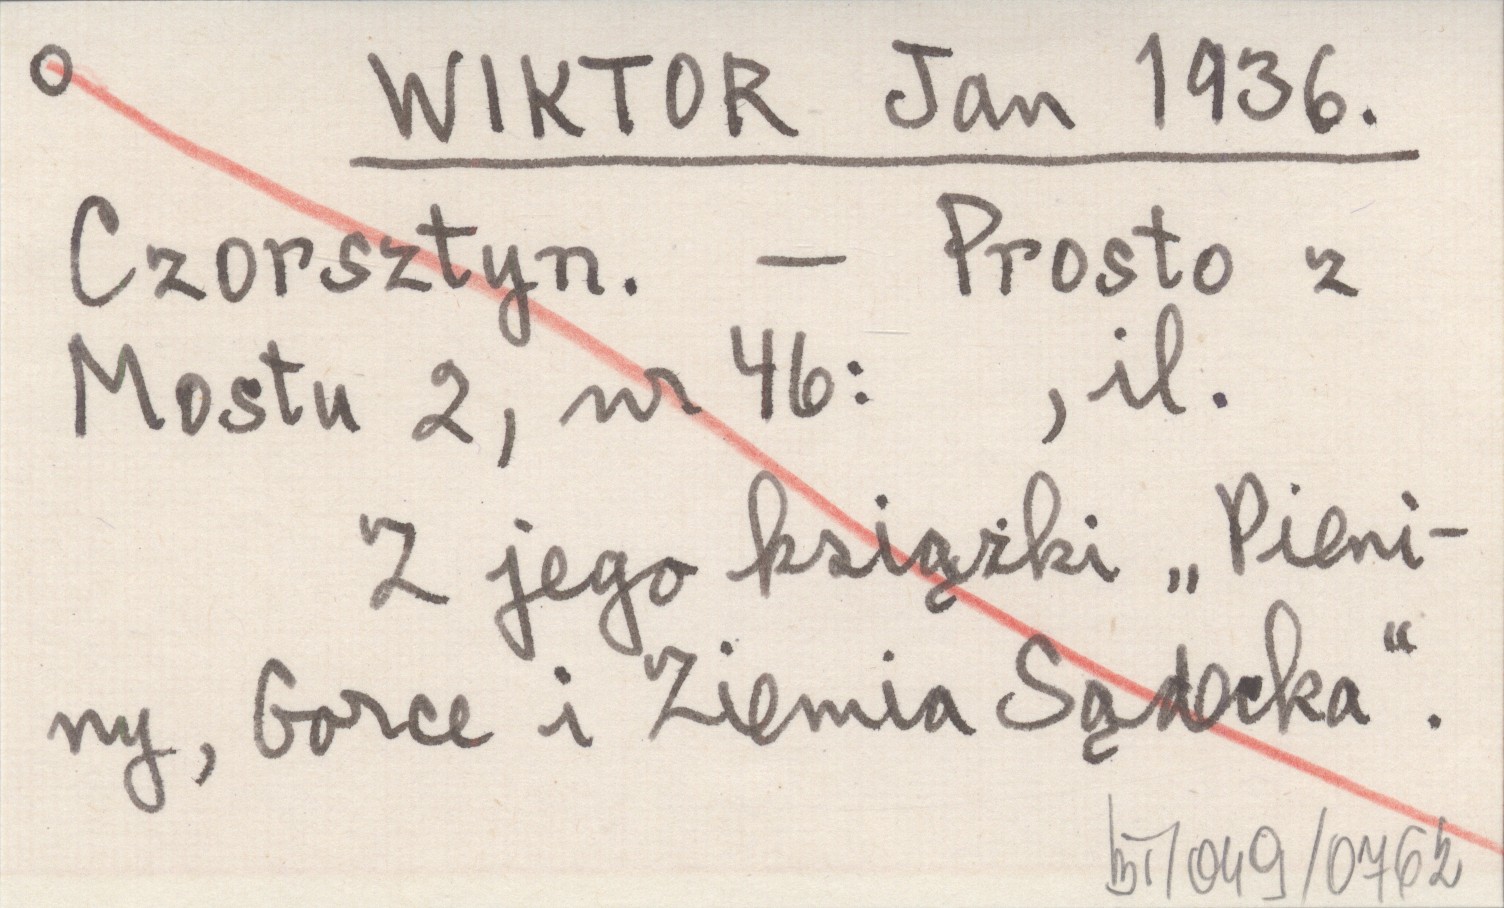 WIKTOR Jan 1936.
Czorsztyn. — Prosto z
Mostu 2, nr 46: , il.
Z jego książki „Pieni-
ny, Gorce i Ziemia Sądecka“.
/049/0762